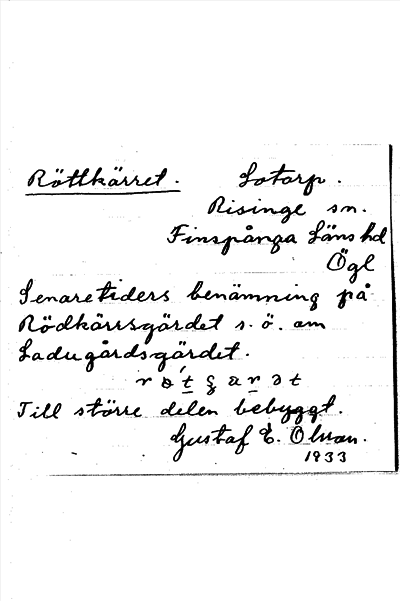 Röttkärret. Lotorp.
Risinge sn.
Finspånga Läns hd
Ögl
Senaretiders benämning på
Rödkärrsgärdet s. ö. om
Ladugårdsgärdet.
Till större delen bebyggt.
Gustaf E. Olsson.
1933